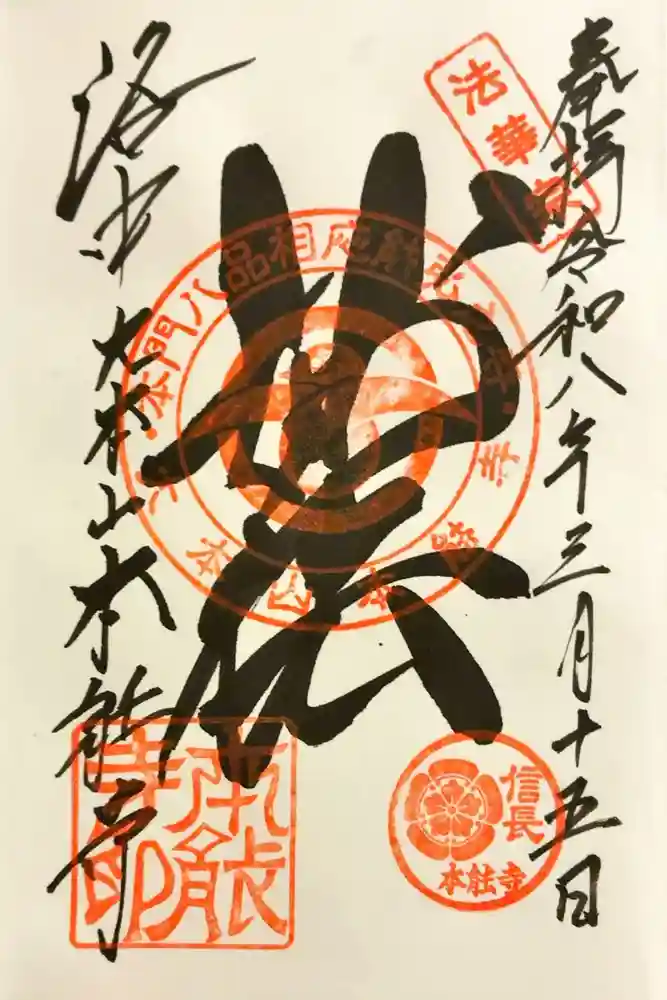 奉拝 令和八年三月十五日
法華宗
妙法
本門八品相應能弘之
大本山本能寺
洛中 大本山本能寺
信長
本能寺
本能寺印